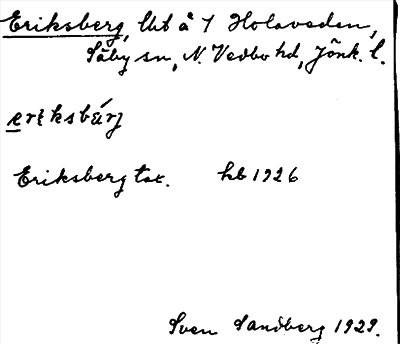 Eriksberg, lht å 1 Holaveden,
Säby sn, N. Vedbo hd, Jönk. l.
eriksbärj
Eriksberg tax. hb 1926
Sven Sandberg 1929.